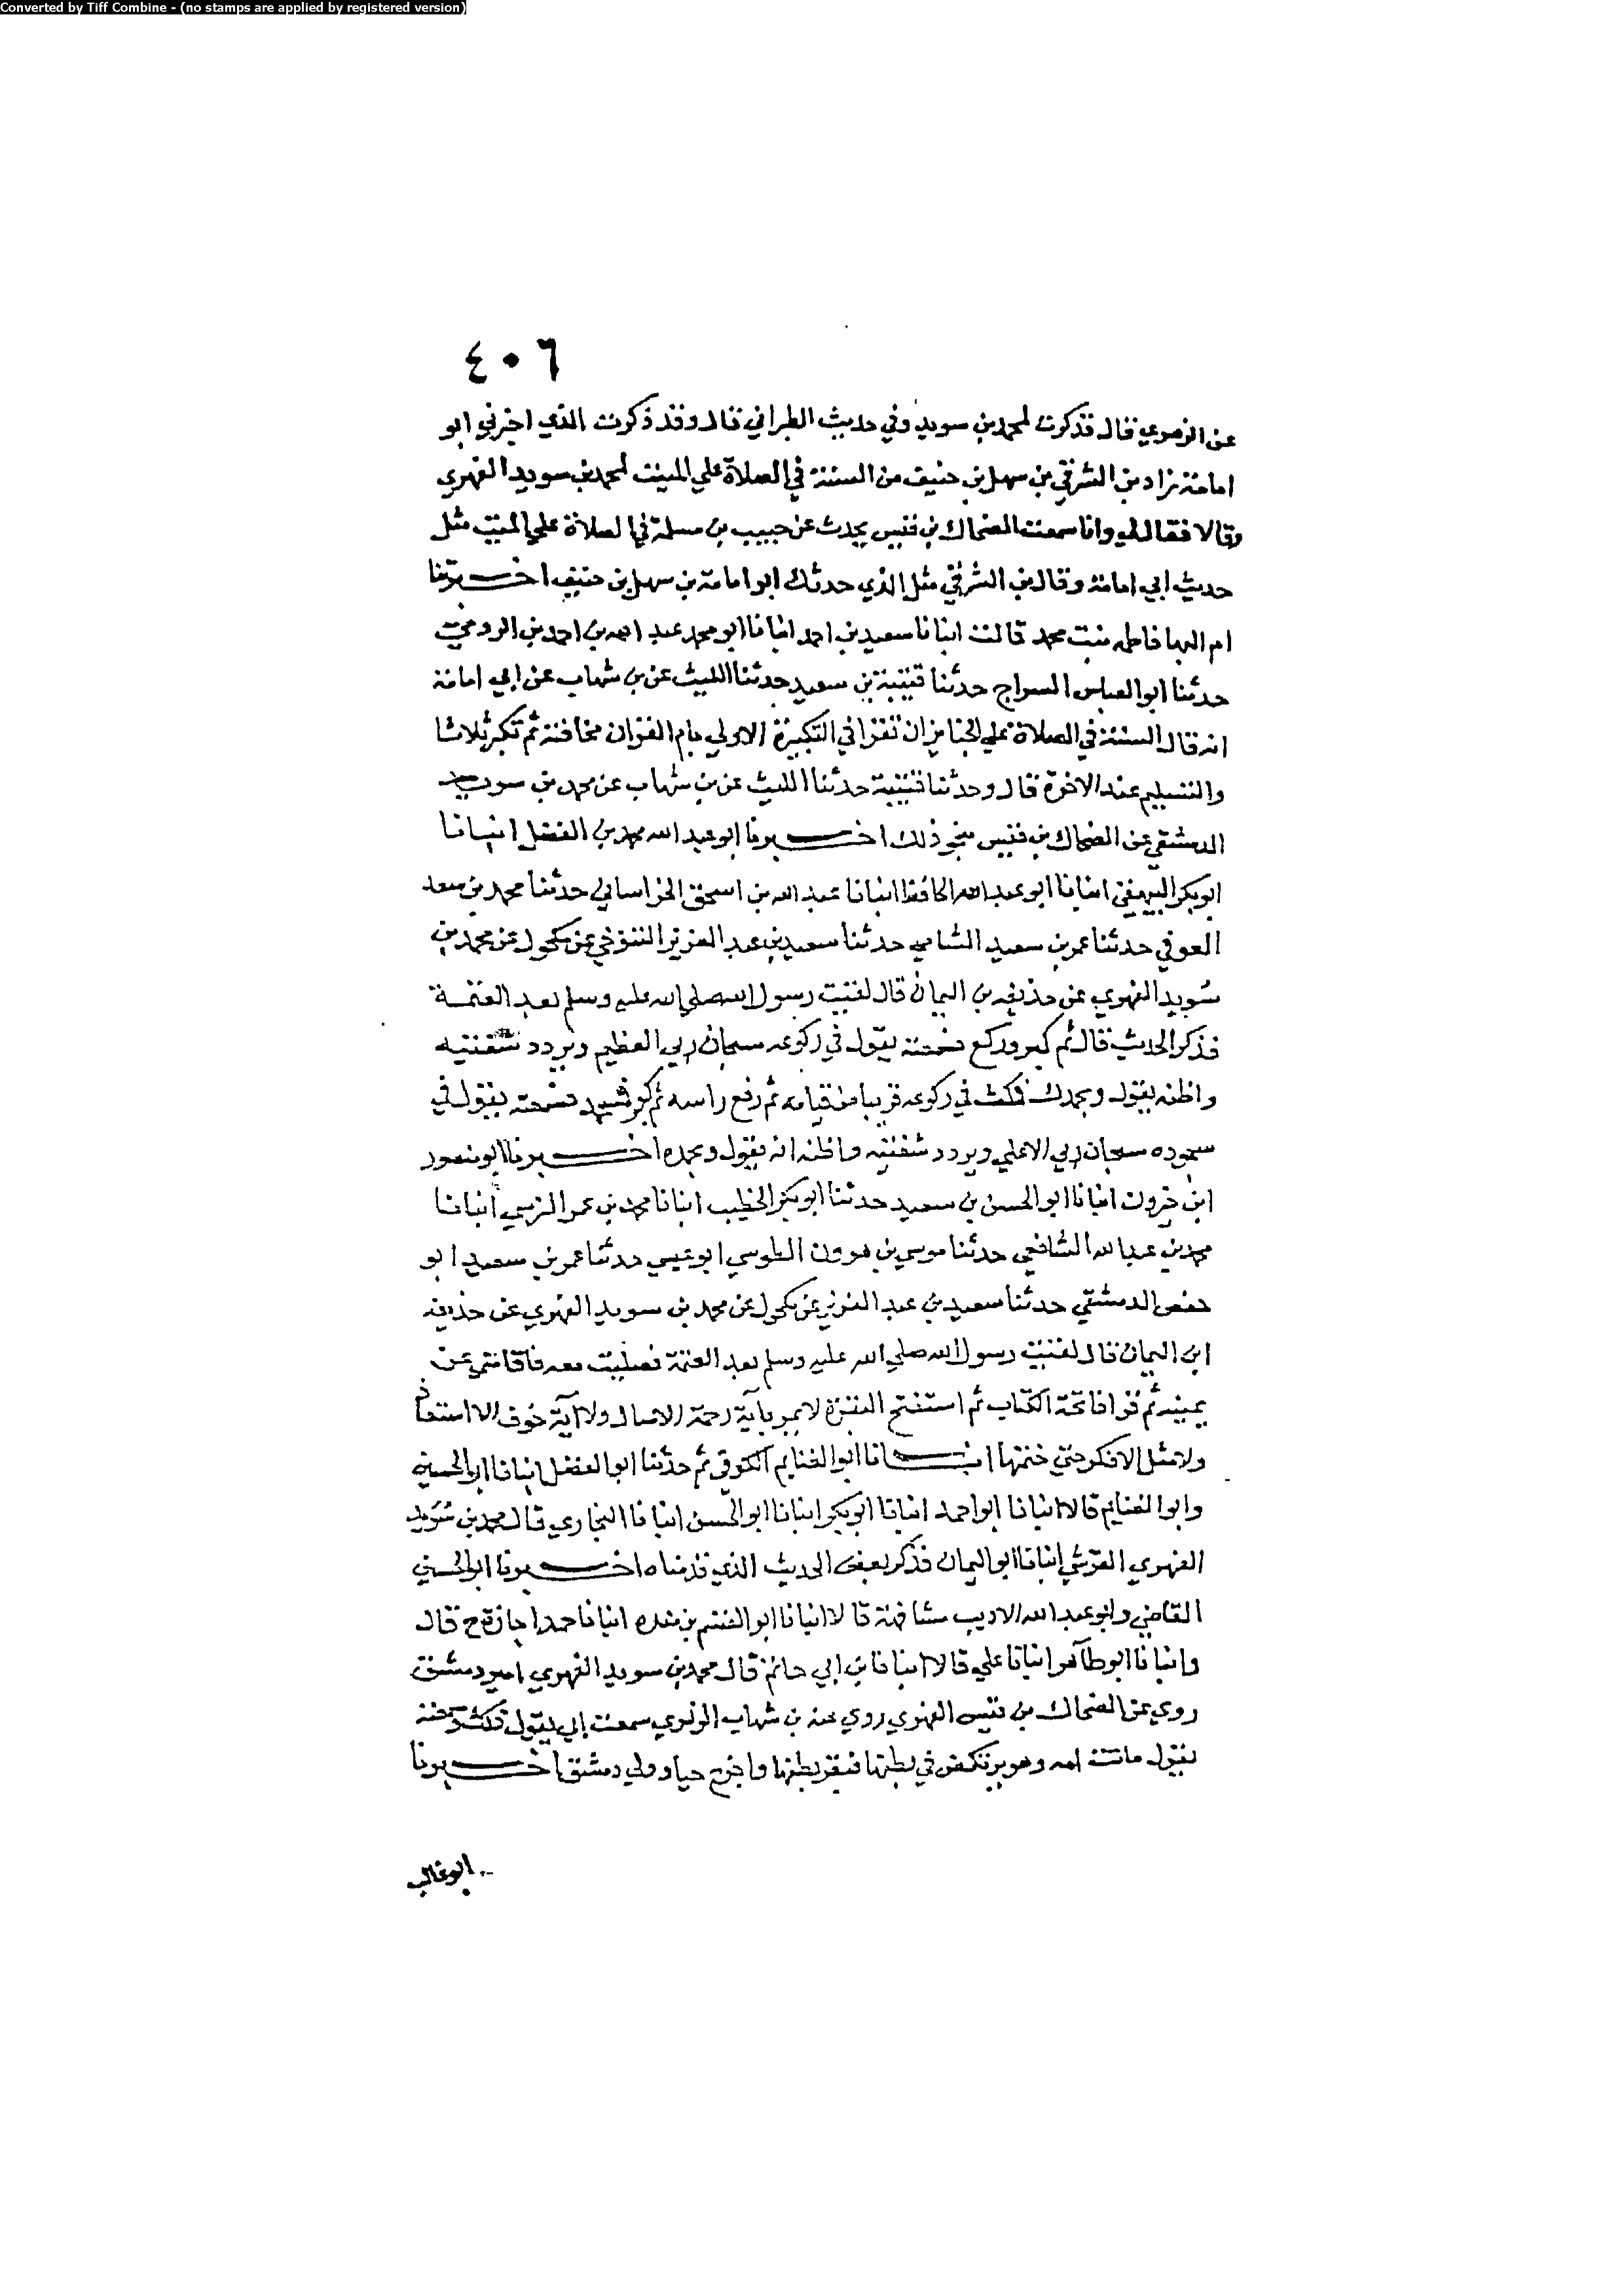 Converted by Tiff Combine - (no stamps are applied by registered version)
٤٠٦
عن الزهري قال فذكرت لمحمد بن سويد وفي حديث الطبراني قال وقد ذكرت الذي اخبرني ابو
امامة زاد بن الشرقي بن سهل بن حنيف من السنة في الصلاة علي الميت لمحمد بن سويد الفهري
وقالا فقال لي وانا سمعت الضحاك بن قيس يحدث عن حبيب بن مسلمة في الصلاة علي الميت مثل
حديث ابي امامة وقال بن الشرقي مثل الذي حدثك ابو امامة بن سهل بن حنيف اخبرتنا
ام البها فاطمه بنت محمد قالت انبانا سعيد بن احمد انبانا ابو محمد عبد الله بن احمد بن الرومي
حدثنا ابو العباس السراج حدثنا قتيبة بن سعيد حدثنا الليث عن بن شهاب عن ابي امامة
انه قال السنة في الصلاة علي الجنايز ان تقرا في التكبيرة الاولي بام القران مخافتة ثم تكبر ثلاثا
والتسليم عند الاخرة قال وحدثنا قتيبة حدثنا الليث عن بن شهاب عن محمد بن سويد
الدمشقي عن الضحاك بن قيس بنحو ذلك اخبرنا ابو عبد الله محمد بن الفضل انبانا
ابو بكر البيهقي انبانا ابو عبد الله الحافظ انبانا عبد الله بن اسحق الخراساني حدثنا محمد بن سعد
العوفي حدثنا عمر بن سعيد الشامي حدثنا سعيد بن عبد العزيز التنوخي عن مكحول عن محمد بن
سُويد الفهري عن حذيفه بن اليمان قال لقيت رسول الله صلي الله عليه وسلم بعد العتمة
فذكر الحديث قال ثم كبر وركع فسمعته يقول في ركوعه سبحان ربي العظيم ويردد شفتيه
واظنه يقول وبحمدك فمكث في ركوعه قريبا من قيامه ثم رفع راسه ثم كبر فسجد فسمعته يقول في
سجوده سبحان ربي الاعلي ويردد شفتيه واظنه انه يقول وبحمده اخبرنا ابو منصور
ابن خيرون انبانا ابو الحسن بن سعيد حدثنا ابو بكر الخطيب انبانا محمد بن عمر النرسي انبانا
محمد بن عبد الله الشافعي حدثنا موسي بن هرون الطوسي ابو عيسي حدثنا عمر بن سعيد ابو
حفص الدمشقي حدثنا سعيد بن عبد العزيز عن مكحول عن محمد بن سويد الفهري عن حذيفه
ابن اليمان قال لقيت رسول الله صلي الله عليه وسلم بعد العتمة فصليت معه فاقامني عن
يمينه ثم قرا فاتحة الكتاب ثم استفتح البقرة لا يمر بآية رحمة الا سال ولا آية خوف الا استعاذ
ولا مثل الا فكر حتي ختمها انبانا ابو الغنايم الكوفي ثم حدثنا ابو الفضل انبانا ابو الحسين
وابو الغنايم قالا انبانا ابو احمد انبانا ابو بكر انبانا ابو الحسن انبانا البخاري قال محمد بن سُوَيد
الفهري القرشي انبانا ابو اليمان فذكر بعض الحديث الذي قدمناه اخبرنا ابو الحسين
القاضي وابو عبد الله الاديب مشافهة قالا انبانا ابو القسم بن منده انبانا حمد اجازة ح قال
وانبانا ابو طاهر انبانا علي قالا انبانا بن ابي حاتم قال محمد بن سويد الفهري امير دمشق
روي عن الضحاك بن قيس الفهري روي عنه بن شهاب الزهري سمعت ابي يقول ذلك وسمعته
يقول ماتت امه وهو يرتكض في بطنها فبقر بطنها واخرج حيا وولي دمشق اخبرنا
ابو غالب